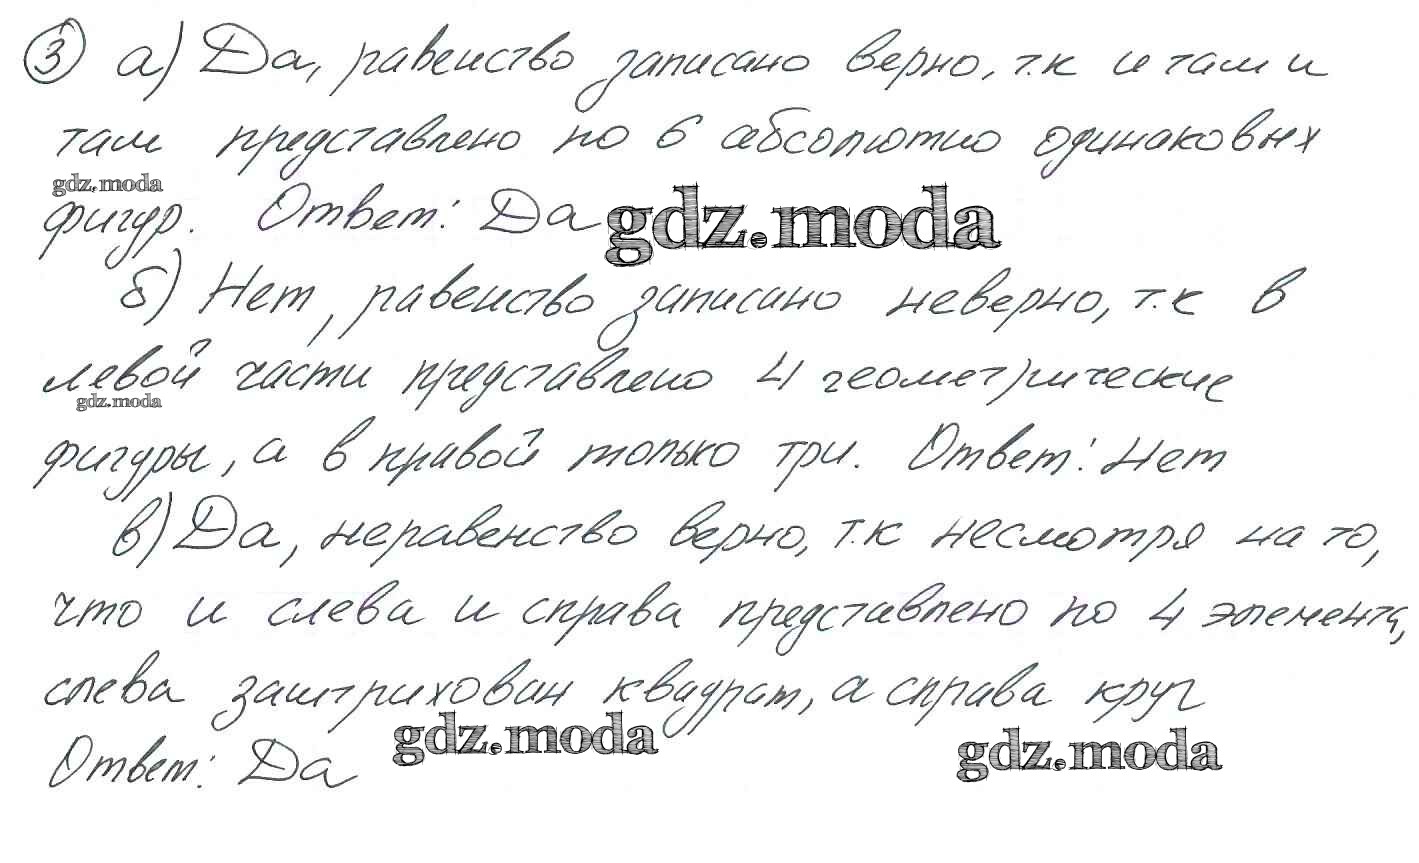 ③ а) Да, равенство записано верно, т.к и там и
там представлено по 6 абсолютно одинаковых
gdz.moda
фигур. Ответ: Да
gdz.moda
б) Нет, равенство записано неверно, т.к в
левой части представлено 4 геометрические
gdz.moda
фигуры, а в правой только три. Ответ: Нет
в) Да, неравенство верно, т.к несмотря на то,
что и слева и справа представлено по 4 элемента,
слева заштрихован квадрат, а справа круг
gdz.moda
gdz.moda
Ответ: Да